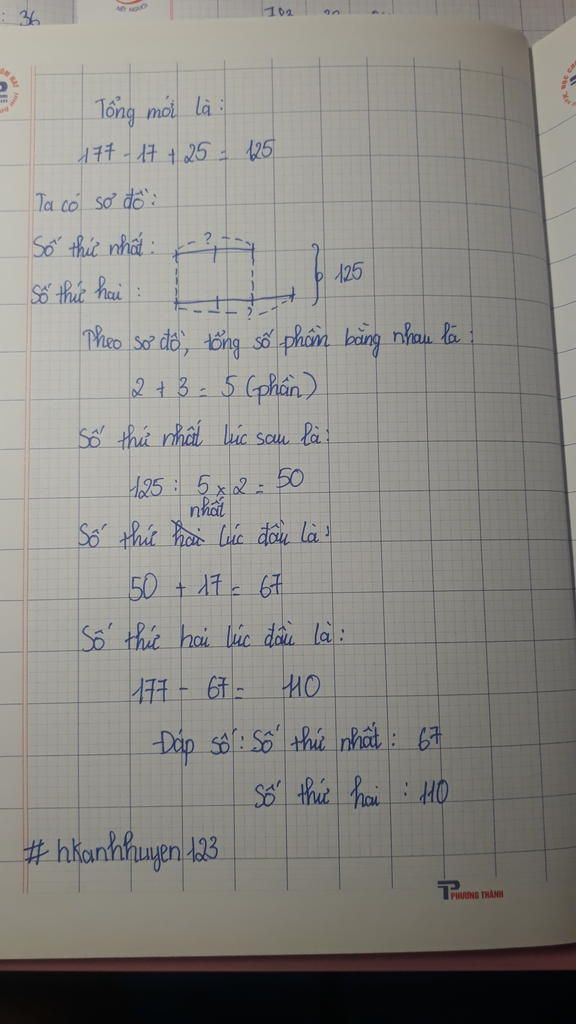 36
Tổng mới là:
177 - 17 + 25 = 125
Ta có sơ đồ:
Số thứ nhất: ?
Số thứ hai : ?
125
Theo sơ đồ, tổng số phần bằng nhau là:
2 + 3 = 5 (phần)
Số thứ nhất lúc sau là:
125 : 5 x 2 = 50
nhất
Số thứ hai lúc đầu là:
50 + 17 = 67
Số thứ hai lúc đầu là:
177 - 67 = 110
Đáp số: Số thứ nhất: 67
Số thứ hai : 110
# hkanhhuyen123
PHƯƠNG THÀNH